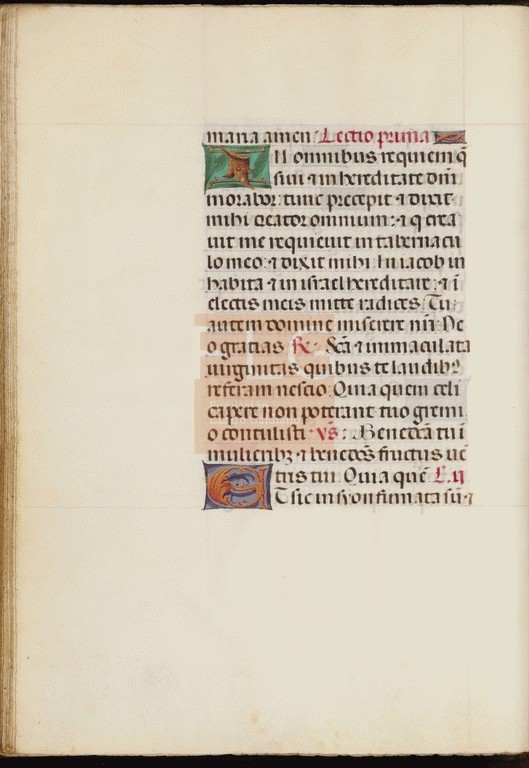 maria amen Lectio prima
IN omnibus requiem q̄
siui ⁊ in hereditate dn̄i
morabor: tunc precepit ⁊ dixit
mihi creator omnium: ⁊ q̄ crea
uit me requieuit in tabernacu
lo meo: ⁊ dixit mihi: In iacob in
habita ⁊ in israel hereditare: ⁊ ī
electis meis mitte radices Tu
autem domine miserere nr̄i De
o gratias ℟ Scā ⁊ immaculata
uirginitas quibus te laudibꝫ
referam nescio: Quia quem celi
capere non poterant tuo gremi
o contulisti ℣: Benedc̄ā tu ī
mulieribꝫ ⁊ benedc̄s fructus uē
tris tui. Quia quē L. ij
ET sic in syon firmata sū ⁊